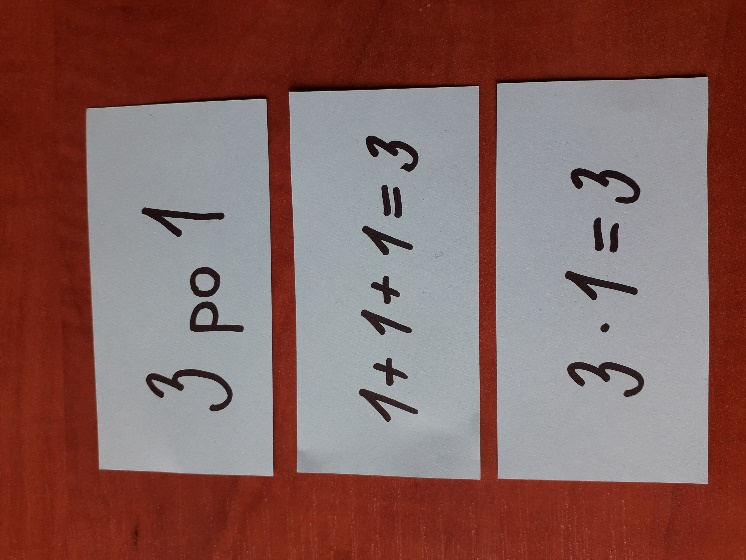 3 po 1
1+1+1=3
3·1=3